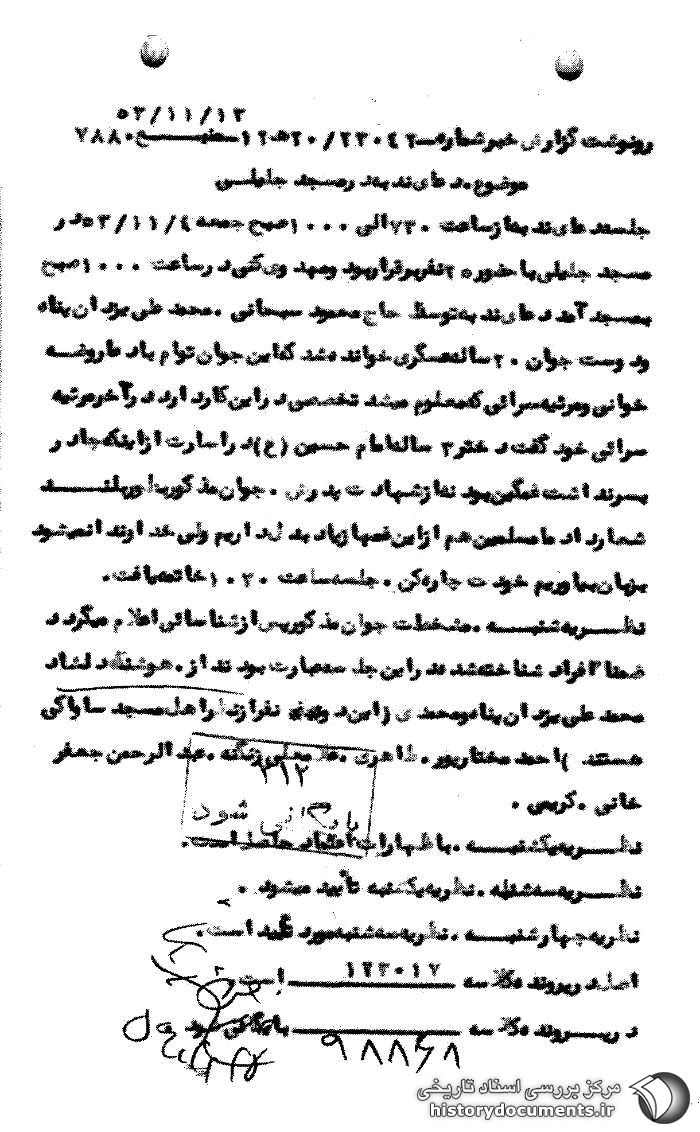 ۵۳/۱۱/۱۳
رونوشت گزارش خبر شماره ۲۰/۲۳۰۴۲ هـ ۱۲ منبع ۷۸۸۰
موضوع . دعای ندبه در مسجد جلیلی
جلسه دعای ندبه از ساعت ۷۳۰ الی ۱۰۰۰ صبح جمعه ۵۳/۱۱/۴ در
مسجد جلیلی با حضور ۲۵ نفر برقرار بود و مهدوی کنی در ساعت ۱۰۰۰ صبح
بمسجد آمد دعای ندبه توسط حاج محمود سبحانی . محمد علی یزدان پناه
ودوست جوان ۲۰ ساله عسگری خوانده شد که این جوان توام با دعا روضه
خوانی و مرثیه سرائی که معلوم میشد تخصصی در این کار دارد در آخر مرثیه
سرائی خود گفت دختر ۳ ساله امام حسین (ع) در اسارت از اینکه چادر
بسر نداشت غمگین بود نه از شهادت پدرش . جوان مذکور بطور بلند
شعار داد ما مسلمین هم از این غمها زیاد بدل داریم ولی خداوندا نمیشود
بزبان بیاوریم خودت چاره کن . جلسه ساعت ۱۰۳۰ خاتمه یافت .
نظریه شنبه . مشخصات جوان مذکور پس از شناسائی اعلام میگردد
ضمنا افراد شناخته شده در این جلسه عبارت بودند از . هوشنگ دلشاد
محمد علی یزدان پناه ومحمدی ( این دو نفر از اهل مسجد ساواکی
هستند ) احمد مختارپور . طاهری . علی زنگنه . عبدالرحمن جعفر
خانی . کریمی .
۳۱۲
بایگانی شود
نظریه یکشنبه . باظهارات اعتماد حاصل است .
نظریه سه شنبه . نظریه یکشنبه تأیید میشود .
نظریه چهارشنبه . نظریه سه شنبه مورد تأیید است .
اصل در پرونده کلاسه ۱۲۳۰۱۷ است .
در پرونده کلاسه ۹۸۸۶۸ بایگانی شود
مرکز بررسی اسناد تاریخی
historydocuments.ir